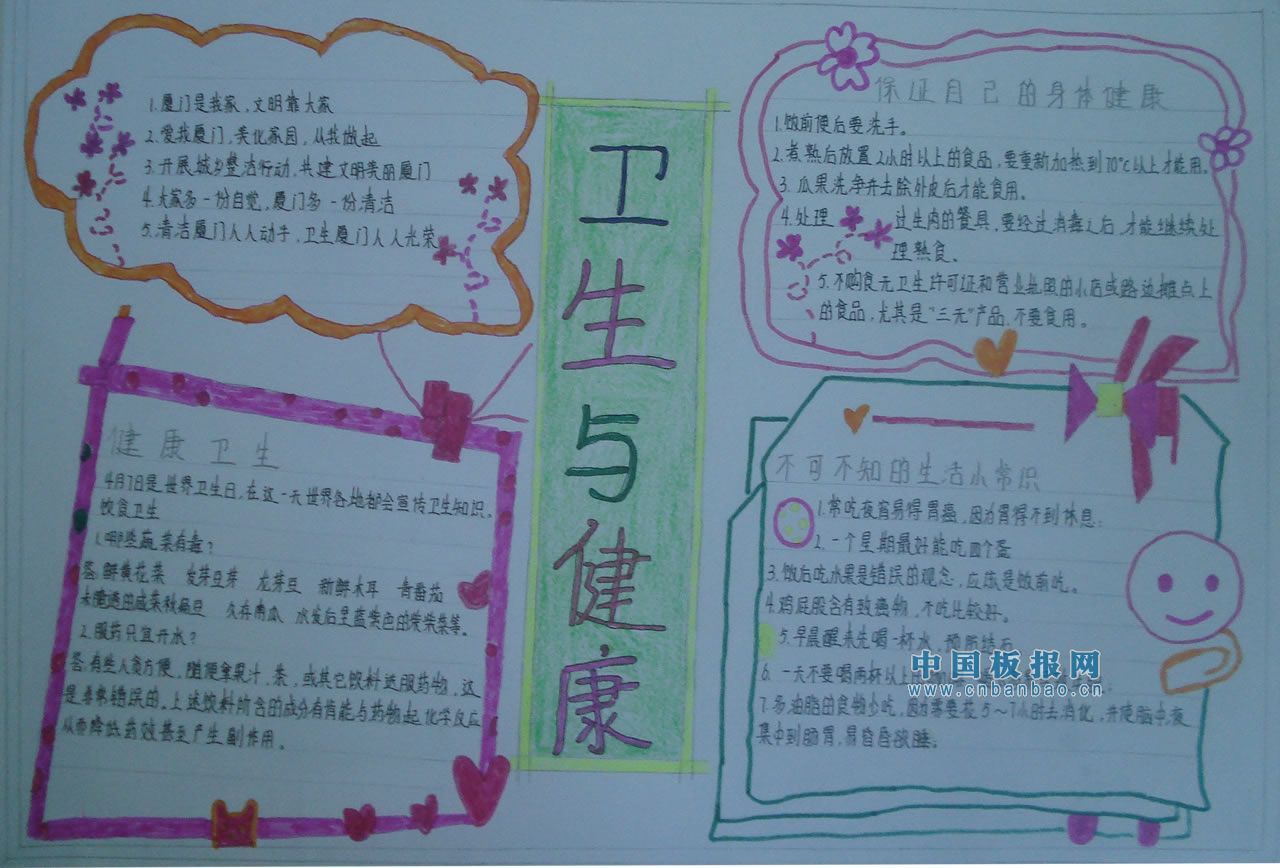 1.厦门是我家，文明靠大家
2.爱我厦门，美化家园，从我做起
3.开展城乡整洁行动，共建文明美丽厦门
4.大家多一份自觉，厦门多一份清洁
5.清洁厦门人人动手，卫生厦门人人光荣
健康卫生
4月7日是世界卫生日，在这一天世界各地都会宣传卫生知识。
饮食卫生
1.哪些蔬菜有毒？
答：鲜黄花菜 发芽豆芽 龙芽豆 新鲜木耳 青番茄
未腌透的咸菜秋扁豆 久存南瓜 水发后呈蓝紫色的紫柴菜等。
2.服药只宜开水？
答：有些人贪方便，随便拿果汁，茶，或其它饮料送服药物，这
是非常错误的。上述饮料所含的成分有肯能与药物起化学反应
从而降低药效甚至产生副作用。
卫生与健康
保证自己的身体健康
1.饭前便后要洗手。
2.煮熟后放置2小时以上的食品，要重新加热到70℃以上才能用。
3.瓜果洗净并去除外皮后才能食用。
4.处理 过生肉的餐具，要经过消毒之后，才能继续处
理熟食、
5.不购食无卫生许可证和营业执照的小店或路边摊点上
的食品，尤其是“三无”产品，不要食用。
不可不知的生活小常识
1.常吃夜宵易得胃癌，因为胃得不到休息；
2.一个星期最好能吃四个蛋
3.饭后吃水果是错误的观念，应该是饭前吃。
4.鸡屁股含有致癌物，不吃比较好。
5.早晨醒来先喝一杯水，预防结石
6.一天不要喝两杯以上的
7.多油脂的食物少吃，因为需要花5～7小时去消化，并使脑中
集中到肠胃，易昏昏欲睡。
中国板报网
www.cnbanbao.cn